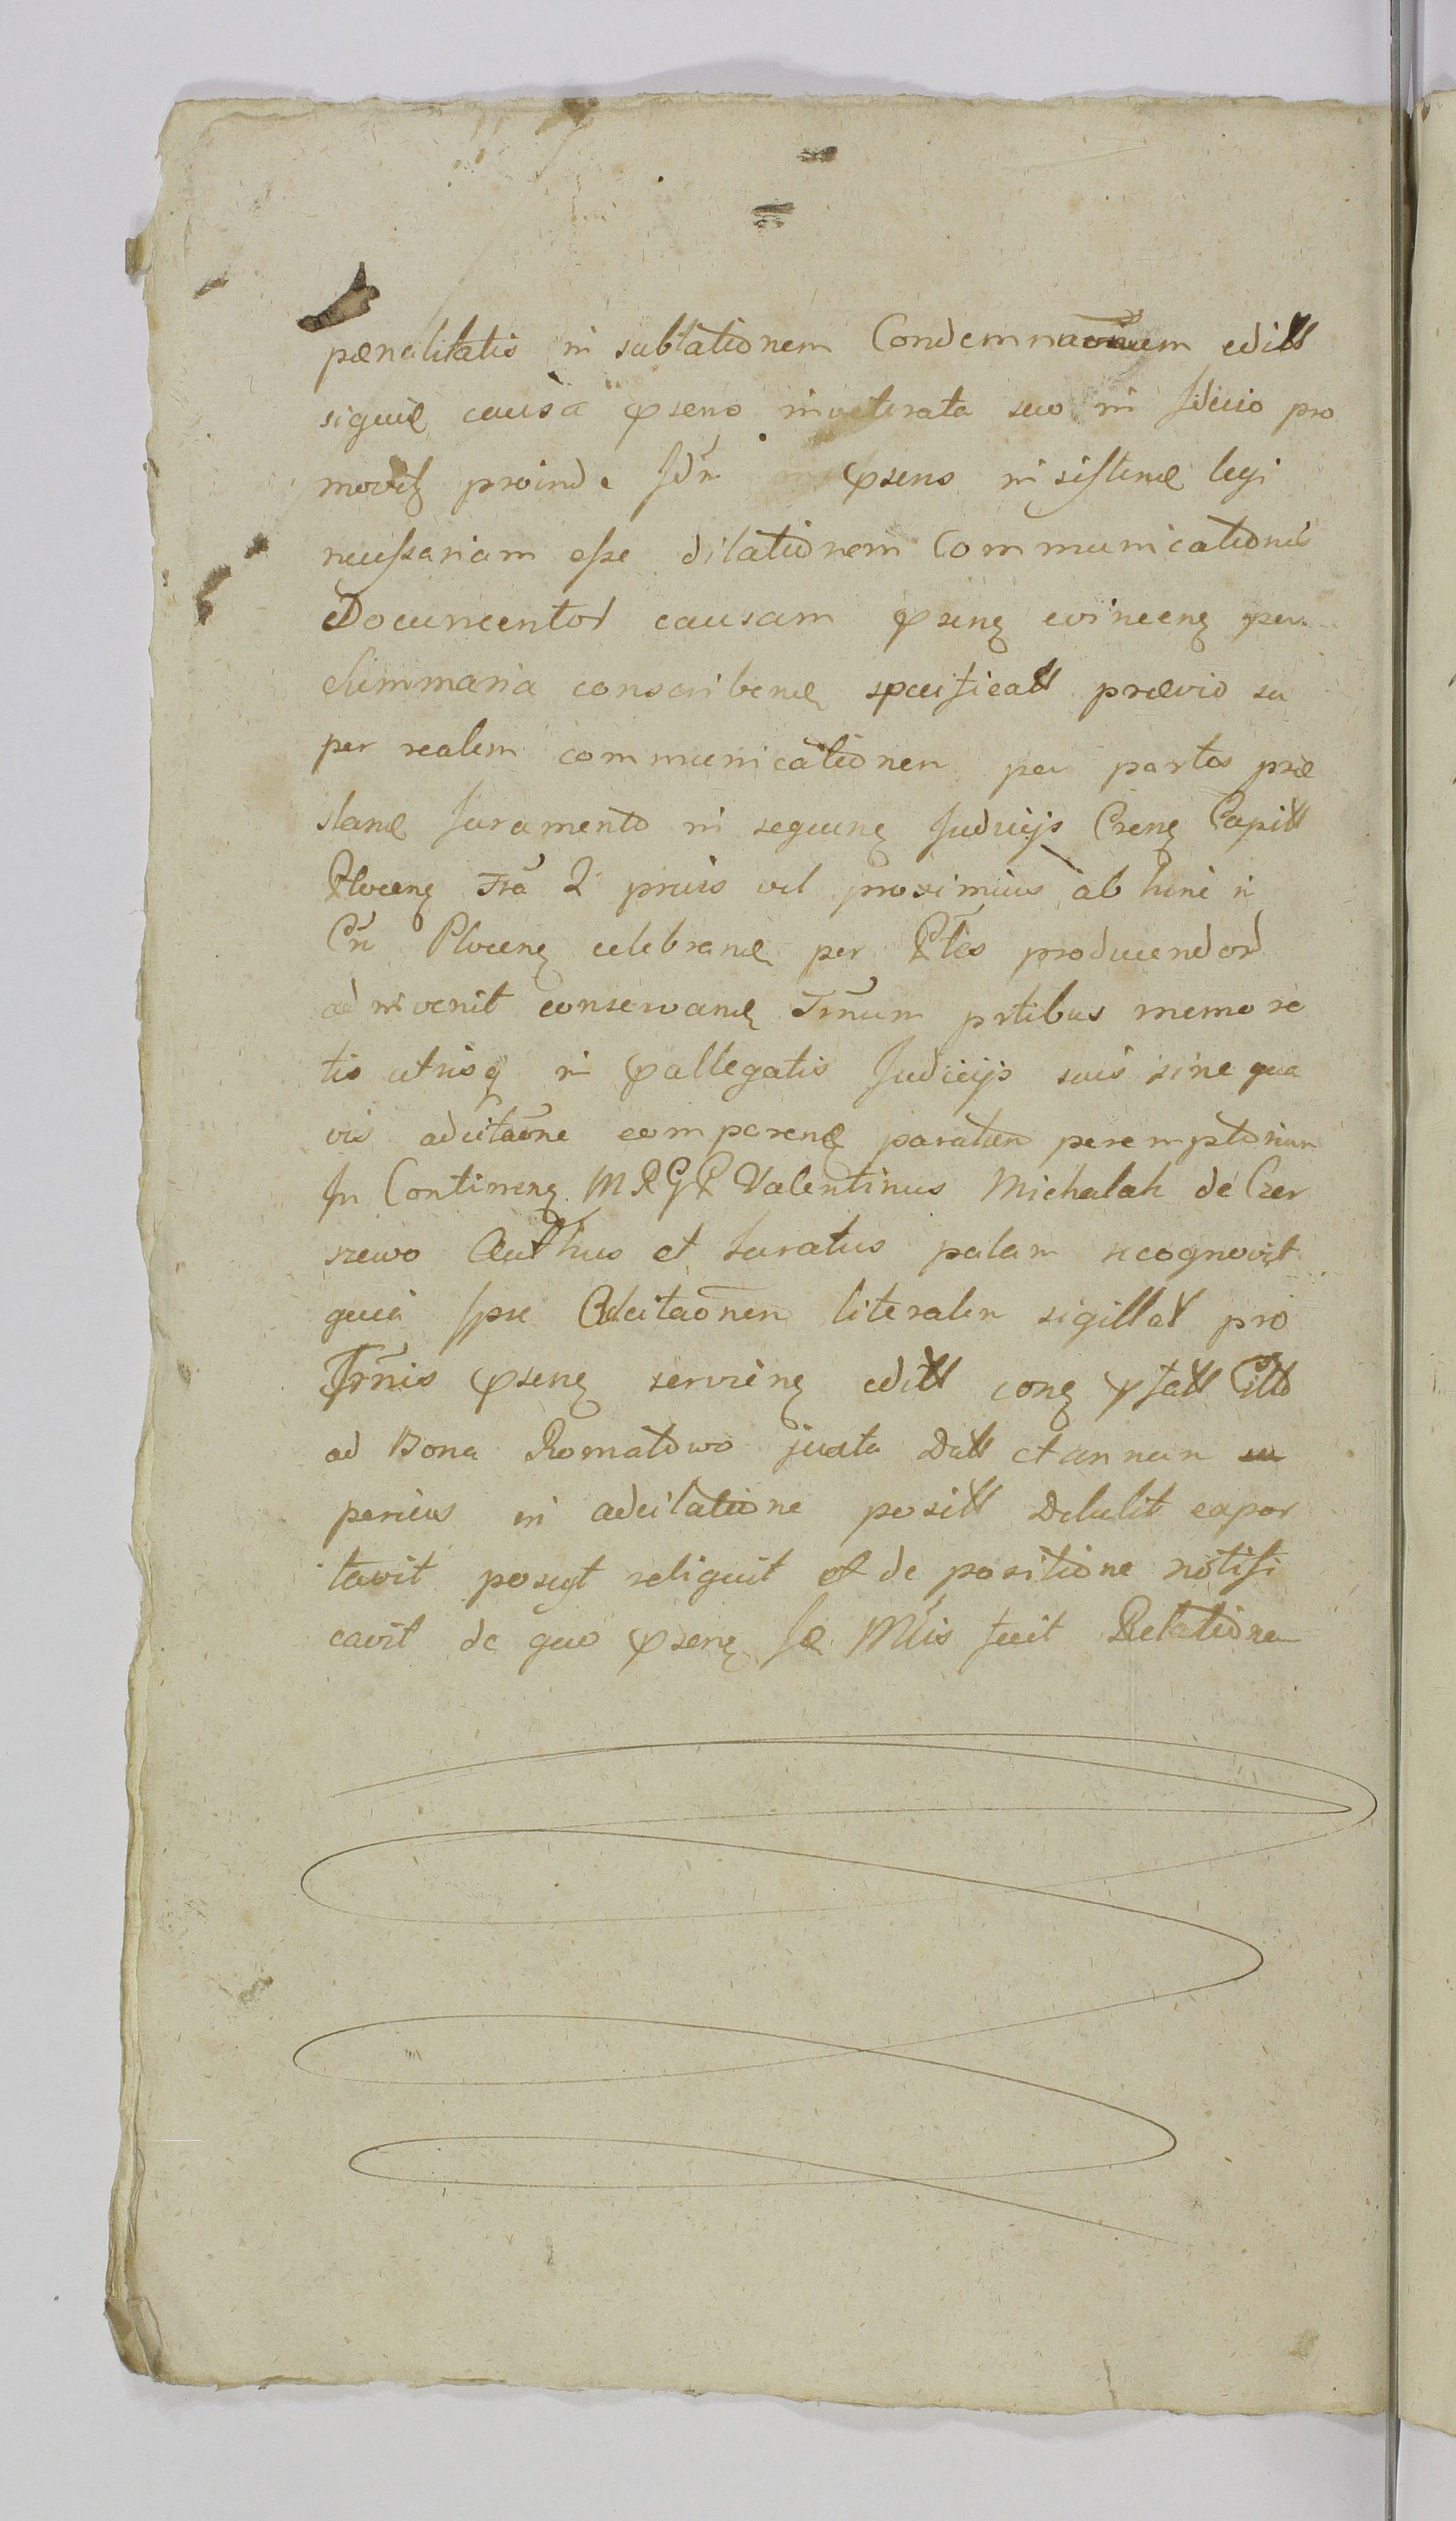 pœnalitatis in sublationem Condemnaõnum editt
siquid causa pseno inveterata suo in Jdicio pro
movetz proinde Jdm pseno insistend legi
necessariam esse dilationem Communicationis
Documentor causam psenz evincenz per
Summaria conscribend specificatt prævio su
per realem communicationem per partes præ
stand Juramento in sequenz Judicijs Crenz Capitt
Plocenz Fra 2 prius vel proximius ab hinc in
Cn Plocenz celebrand per Ptes producendor
adinvenit conservand Trnum prtibus memora
tis utrisq in pallegatis Judicijs suis sine qua
vis adcitaõne comparend paratum peremptorium
In Continenz MRGR Valentinus Michalak de Czer
szewo Authus et Juratus palam recognovit
quia Ipse Adcitaõnem literalem sigillat pro
Trnis psenz servienz editt conz pfatt Citto
ad Bona Romatowo juxta Datt et annum su
perius in adcitatione positt Detulit expor
tavit posuit reliquit et de positione notifi
cavit de quo psenz Se Mtris fecit Relationem